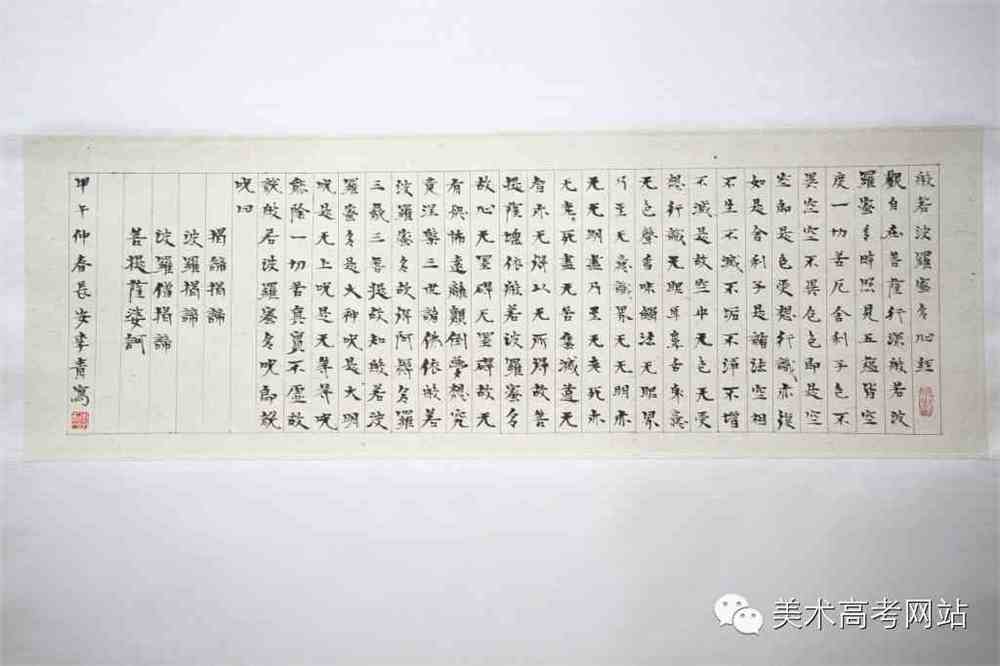 般若波羅蜜多心經
觀自在菩薩行深般若波
羅蜜多時照見五蘊皆空
度一切苦厄舍利子色不
異空空不異色色即是空
空即是色受想行識亦復
如是舍利子是諸法空相
不生不滅不垢不淨不增
不減是故空中无色无受
想行識无眼耳鼻舌身意
无色聲香味觸法无眼界
乃至无意識界无无明亦
无无明盡乃至无老死亦
无老死盡无苦集滅道无
智亦无得以无所得故菩
提薩埵依般若波羅蜜多
故心无罣礙无罣礙故无
有恐怖遠離顛倒夢想究
竟涅槃三世諸佛依般若
波羅蜜多故得阿耨多羅
三藐三菩提故知般若波
羅蜜多是大神咒是大明
咒是无上咒是无等等咒
能除一切苦真實不虛故
說般若波羅蜜多咒即說
咒曰
揭諦揭諦
波羅揭諦
波羅僧揭諦
菩提薩婆訶
甲午仲春長安李寫
美术高考网站